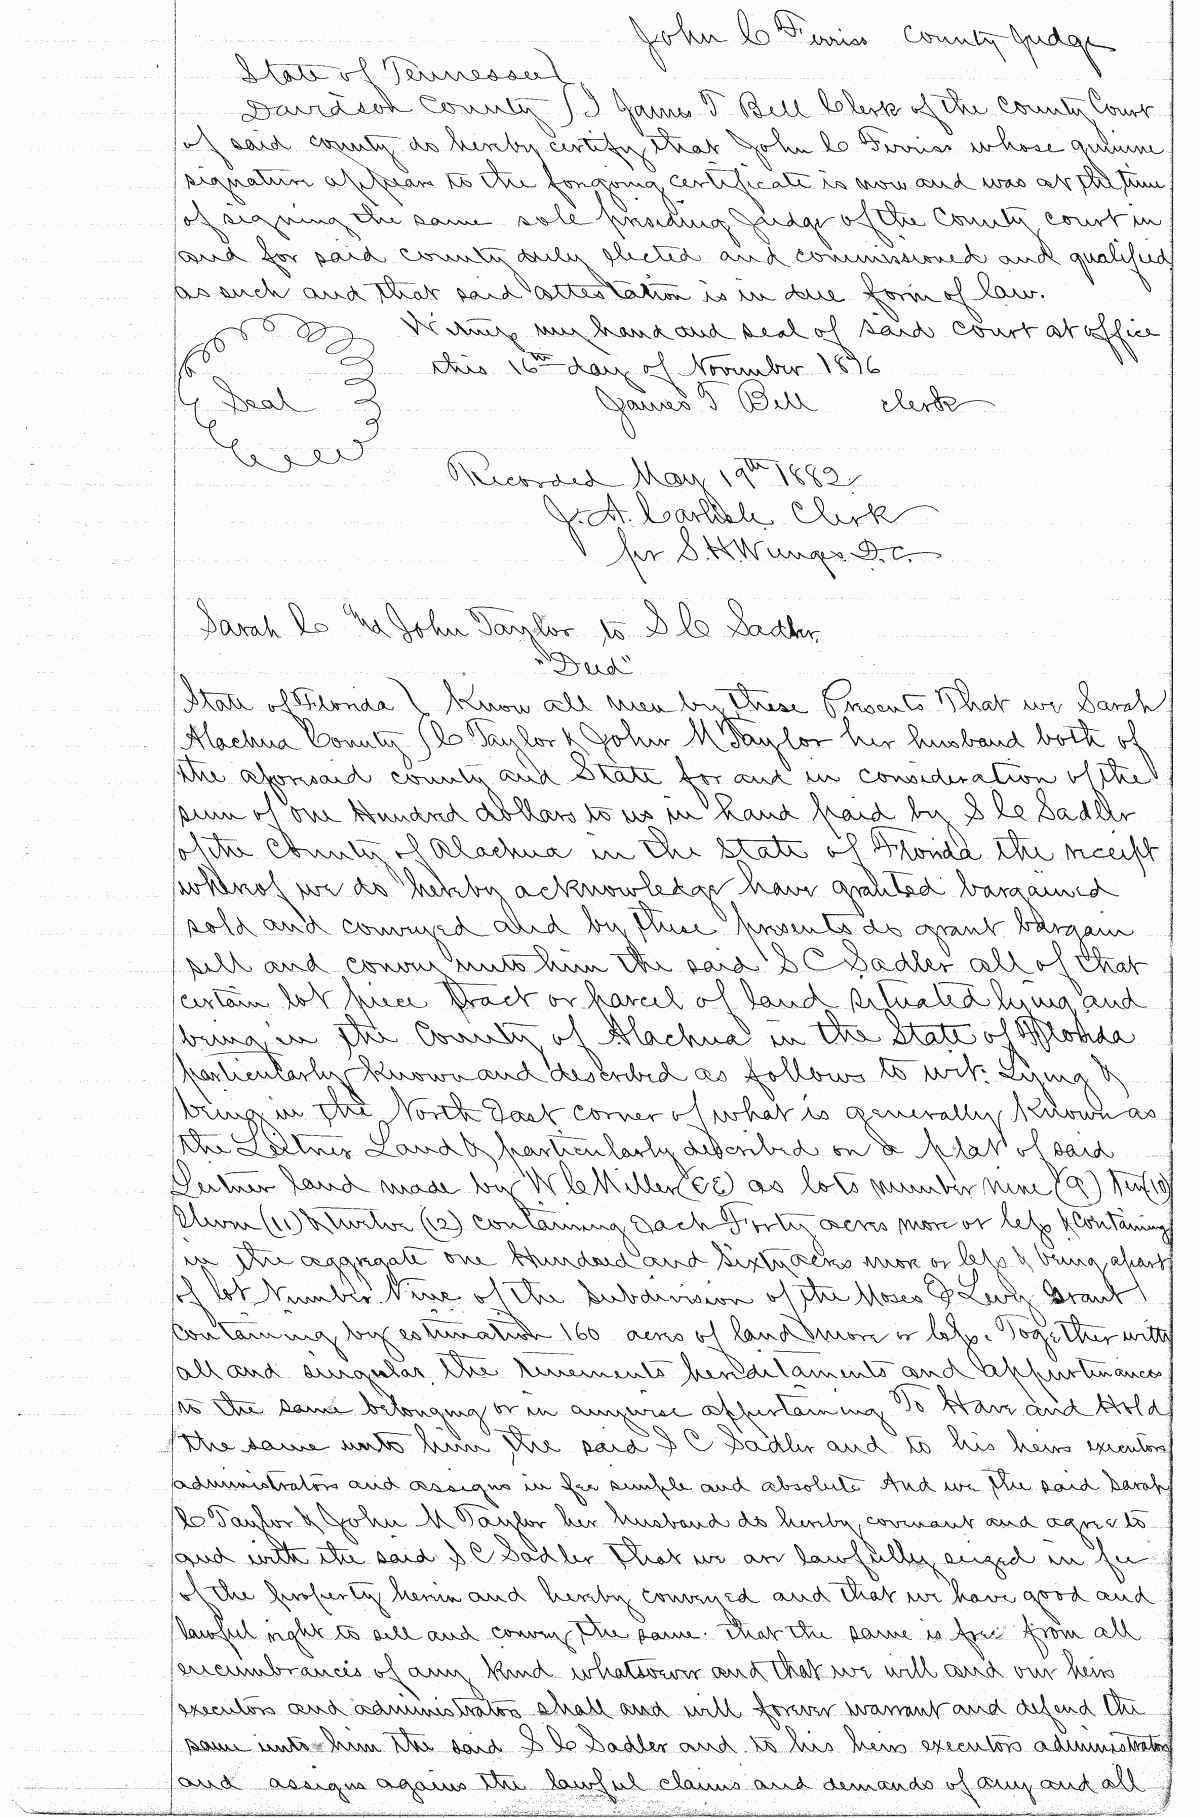 John C Ferriss County Judge
State of Tennessee }
Davidson County } I James T Bell Clerk of the County Court
of said county do hereby certify that John C Ferriss whose genuine
signature appears to the foregoing certificate is now and was at the time
of signing the same sole presiding Judge of the County court in
and for said county duly elected and commissioned and qualified
as such and that said attestation is in due form of law.
Witness my hand and seal of said court at office
this 16th day of November 1876
Seal James T Bell clerk
Recorded May 19th 1882
J. A. Carlisle Clerk
per S. H. D.C.
Sarah C and John Taylor to S C Sadler
"Deed"
State of Florida } Know all men by these Presents That we Sarah
Alachua County } C Taylor & John M Taylor her husband both of
the aforesaid county and State for and in consideration of the
sum of one Hundred dollars to us in hand paid by S C Sadler
of the County of Alachua in the State of Florida the receipt
whereof we do hereby acknowledge have granted bargained
sold and conveyed and by these presents do grant bargain
sell and convey unto him the said S C Sadler all of that
certain lot piece tract or parcel of land situated lying and
being in the County of Alachua in the State of Florida
particularly known and described as follows to wit: Lying &
being in the North East corner of what is generally known as
the Leitner Land & particularly described on a plat of said
Leitner land made by W C Miller (CE) as lots number nine (9) Ten (10)
Eleven (11) & twelve (12) containing Each Forty acres more or less & containing
in the aggregate one Hundred and Sixty acres more or less & being a part
of lot Number Nine of the subdivision of the Moses E Levy Grant
containing by estimation 160 acres of land more or less. Together with
all and singular the tenements hereditaments and appurtenances
to the same belonging or in anywise appertaining To Have and Hold
the same unto him the said S C Sadler and to his heirs executors
administrators and assigns in fee simple and absolute And we the said Sarah
C Taylor & John M Taylor her husband do hereby covenant and agree to
and with the said S C Sadler That we are lawfully seized in fee
of the property herein and hereby conveyed and that we have good and
lawful right to sell and convey the same. that the same is free from all
encumbrances of any kind whatsoever and that we will and our heirs
executors and administrators shall and will forever warrant and defend the
same unto him the said S C Sadler and to his heirs executors administrators
and assigns agains the lawful claims and demands of any and all